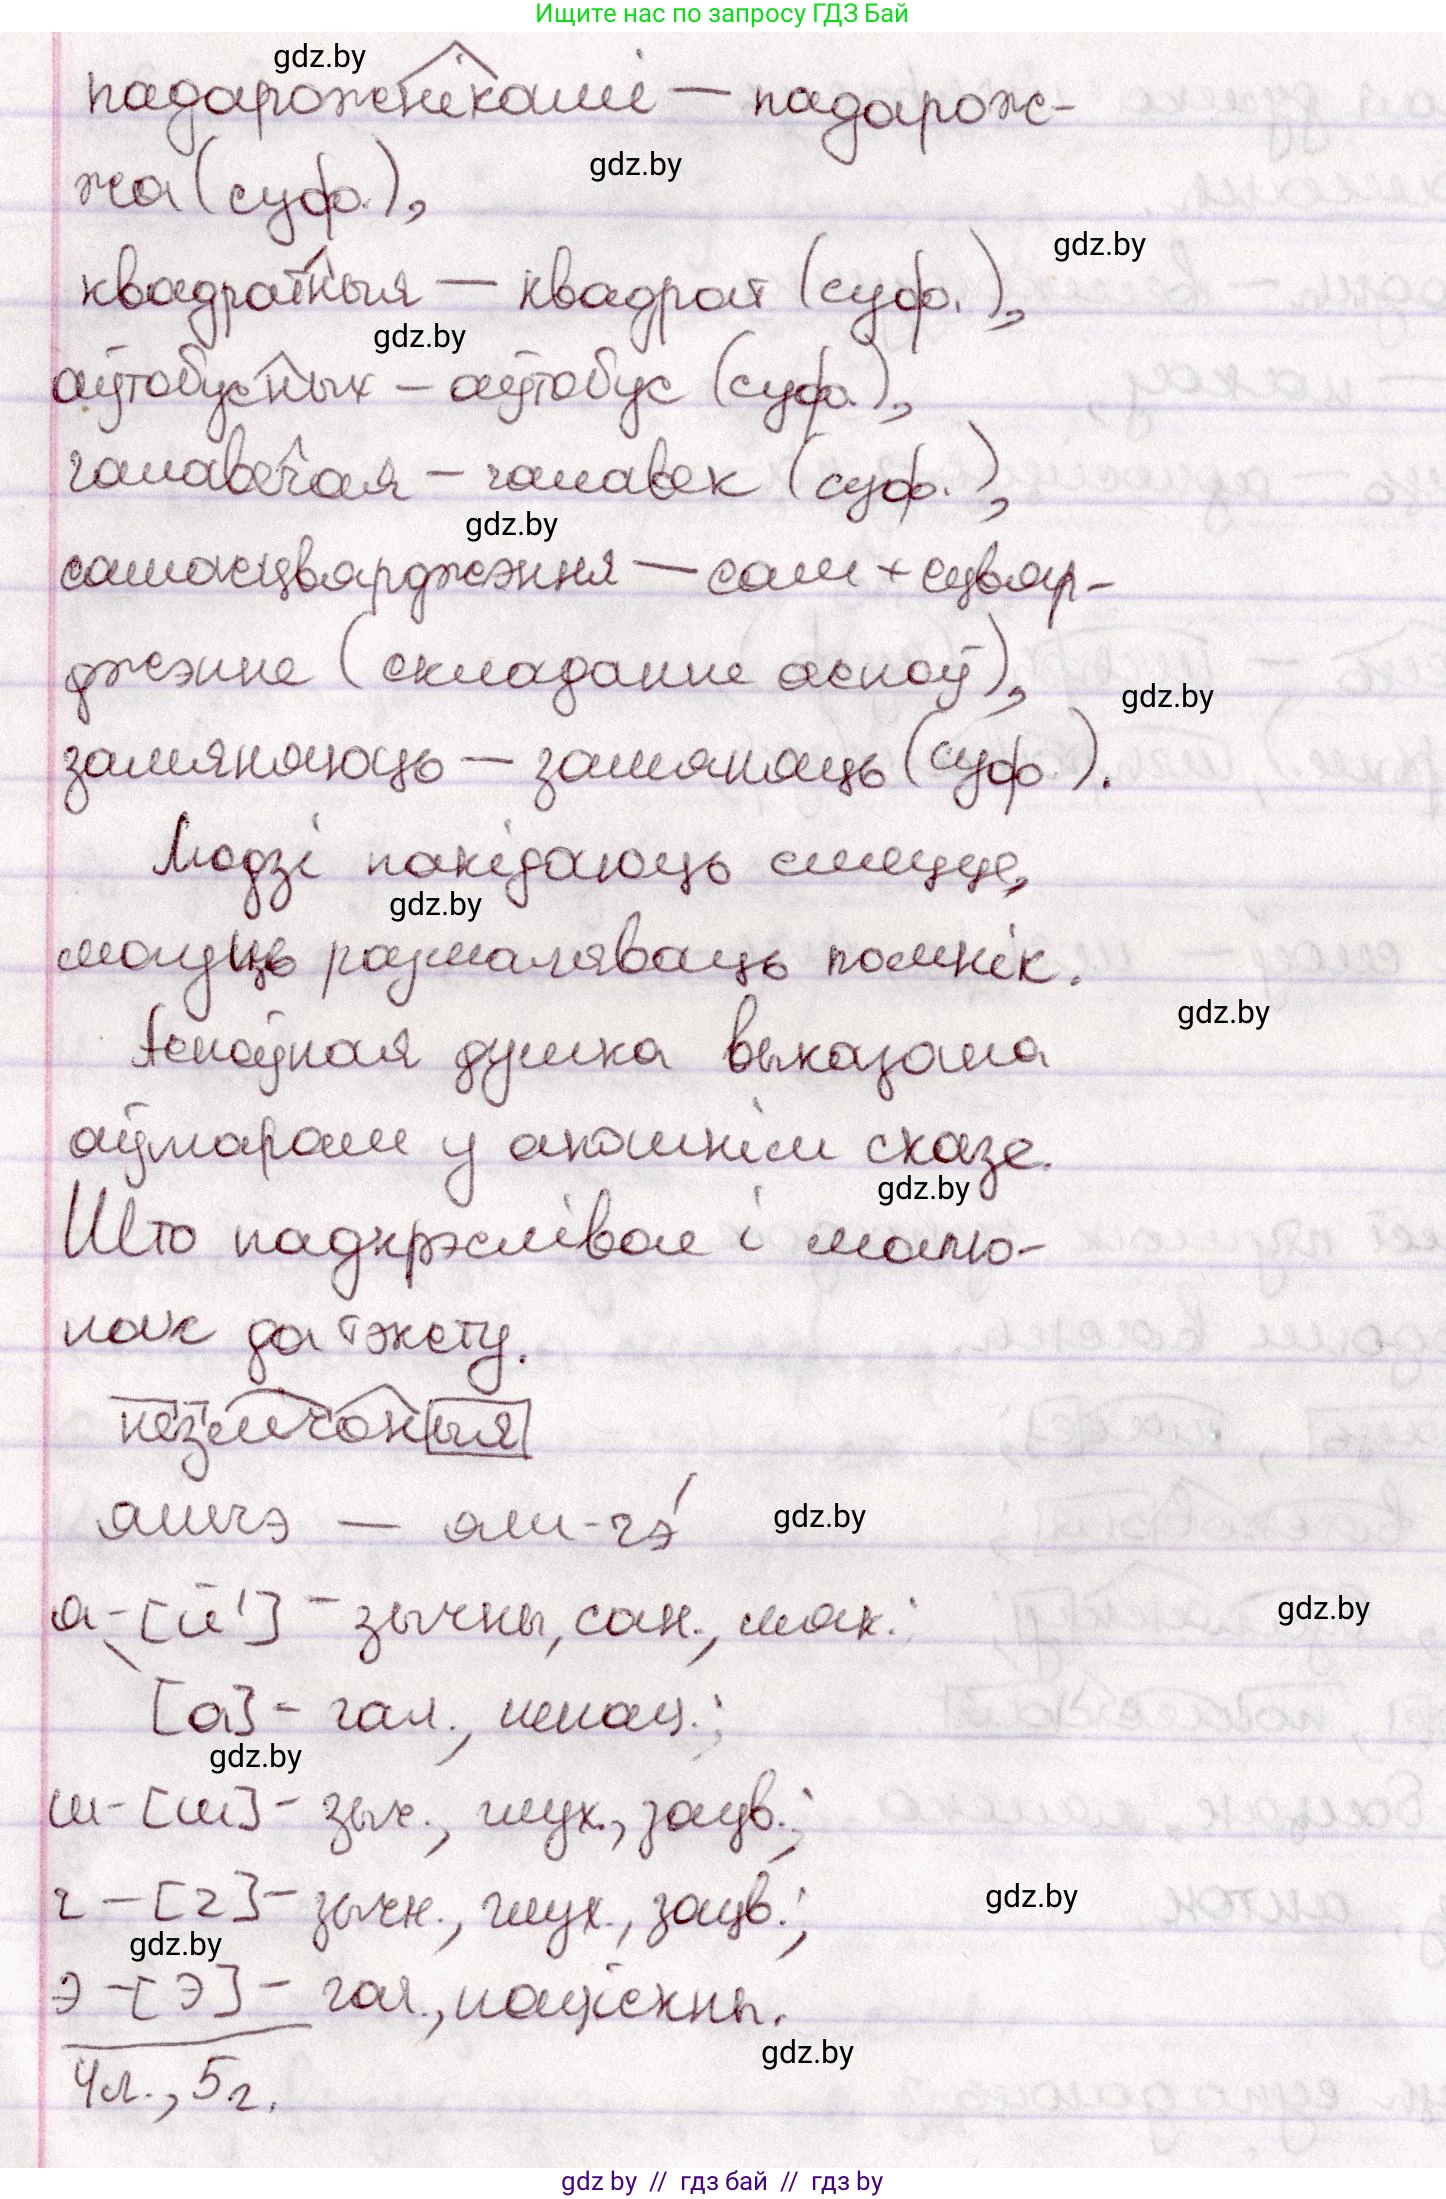 Ищите нас по запросу ГДЗ Бай
gdz.by
падарожнікамі – падарож-
жа (суф.),
gdz.by
gdz.by
квадратныя – квадрат (суф.),
gdz.by
аўтобусных – аўтобус (суф.),
чалавечая – чалавек (суф.),
gdz.by
самасцвярджэння – сам + сцвяр-
джэнне (складанне асноў),
gdz.by
замяняюць – замяняць (суф.).
Людзі пакідаюць смецце,
gdz.by
могуць размаляваць помнік.
gdz.by
Асноўная думка выказана
аўтарам у апошнім сказе.
gdz.by
Што падкрэслівае і малю-
нак да тэксту.
незлічоныя
яшчэ – яш-чэ́
gdz.by
я – [й'] – зычны, сан., мяк.;
gdz.by
[а] – гал., ненац.;
gdz.by
ш – [ш] – зыч., глух., зацв.;
ч – [ч] – зычн., глух., зацв.;
gdz.by
gdz.by
э – [э] – гал., націскны.
gdz.by
4л., 5г.
gdz.by // гдз бай // гдз by